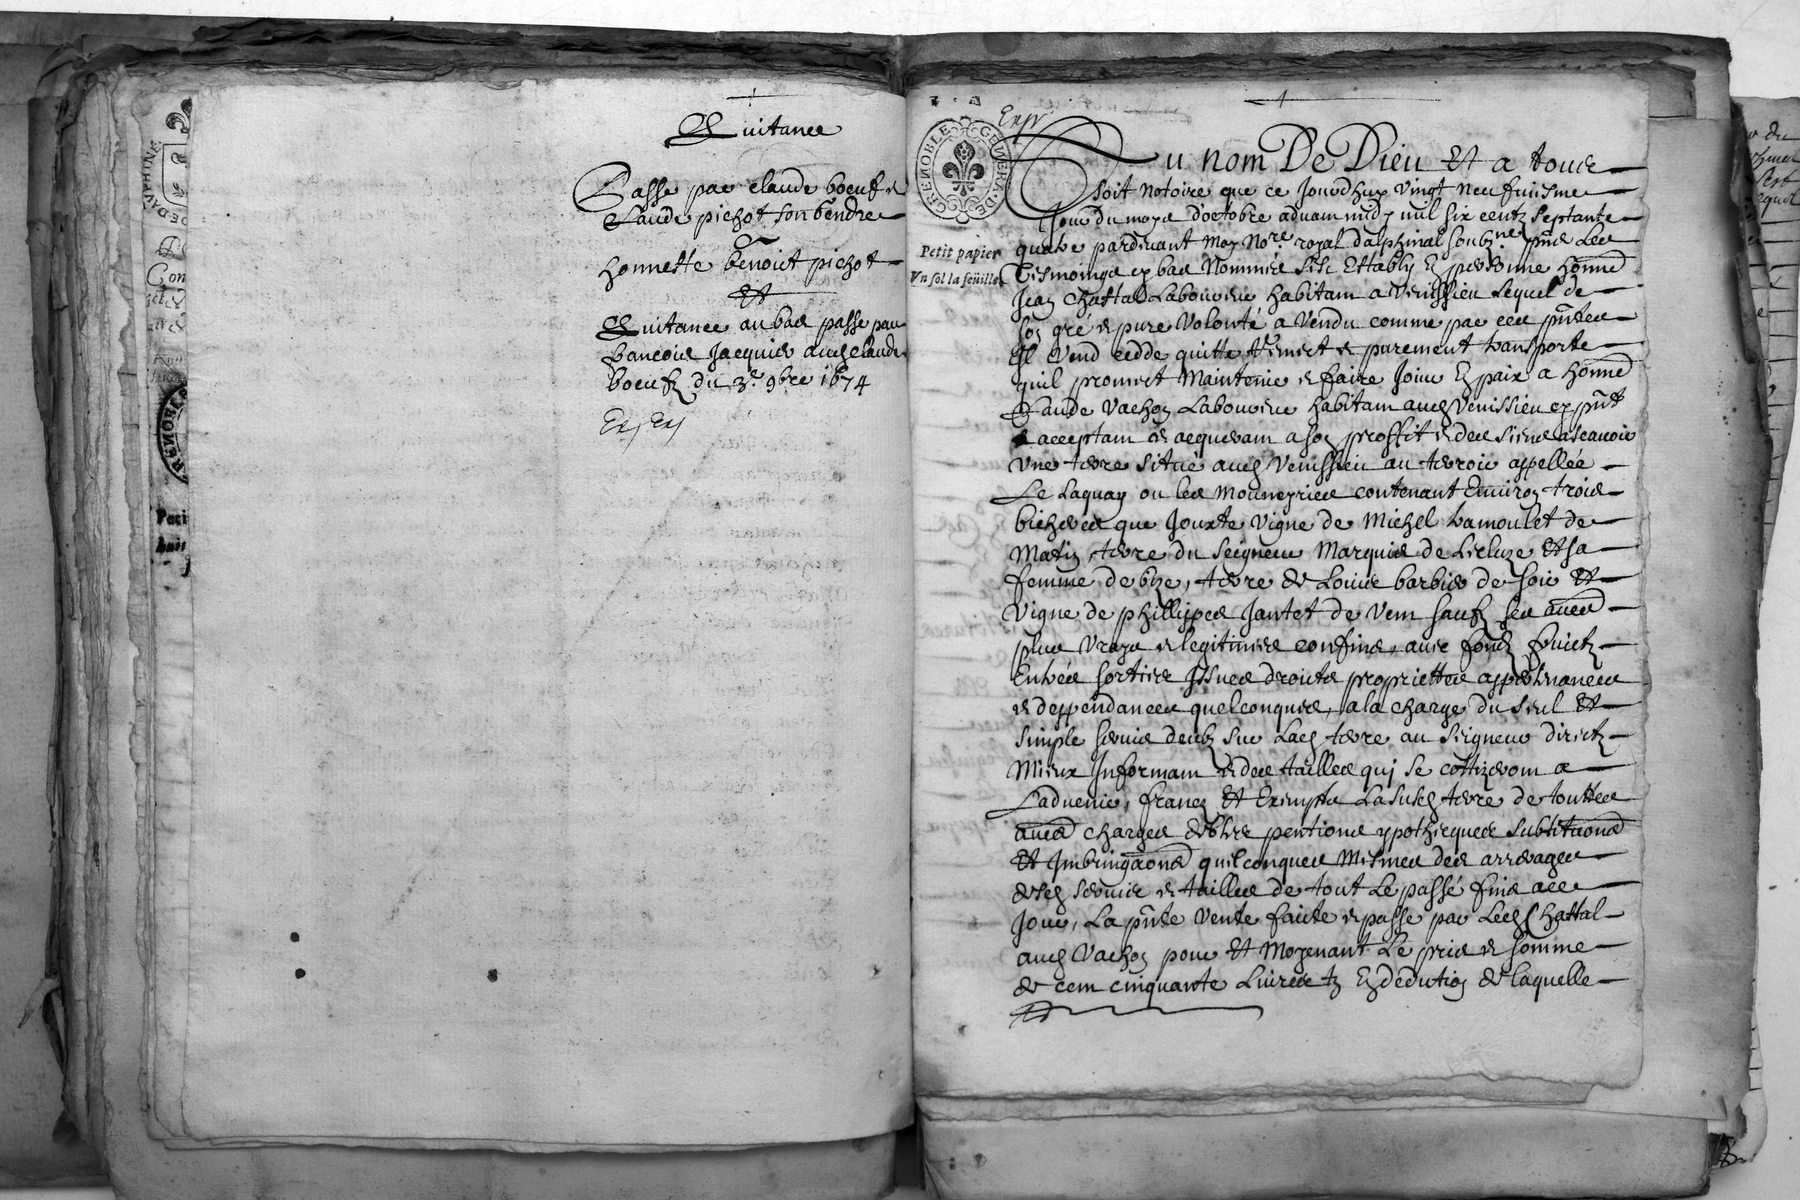 Quitance
Passe par claude boeuf et
Claude pichot son gendre
a
honnette benoict pichot
Et
Quitance au bas passe par
francois Jacquier aud claude
boeuf du 3e 9bre 1674
GRENOBLE GENERA DE
Petit papier
Vn sol la feüille
Au nom De Dieu Et a tous
soit notoire que ce Jourdhuy vingt neufuiesme
Jour du moys d'octobre aduant midy mil six centz septante
quatre pardeuant moy nore royal dalphinal soubzne pnts Les
Tesmoings cy bas Nommés s'est Estably En personne honned
Jean Chattal Laboureur habitant a Venissieu Lequel de
son gré et pure Volonté a Vendu comme par ces pntes
Il Vend cedde quitte remect et purement transporte
quil promect Maintenir et faire Jouir En paix a honned
Claude Vachon Laboureur habitant aud Venissieu cy pnt
acceptant et acquerant a son proffit et des siens a scauoir
Vne terre situé aud Venissieu au terroir appellée
Le Laquay ou les Mouneyries contenant Enuiron trois
bicherées que Jouxte Vigne de Michel tramoulet de
Matin, terre du Seigneur Marquis de L'ecluze Et sa
femme de bize, terre de Louis barbier de soir Et
Vigne de phillippes Jantet de Vent sauf ses autres
plus Vrays et legitimes confins, auec fonds fruictz
Entrées sorties Issues droits proprietés appertenances
et deppendances quelconques, a la charge du seul Et
simple seruis deub sur Lad terre au seigneur direct
Mieux Informant et des tailles qui se cottizeront a
L'aduenir, franc Et Exempte La susd terre de touttes
autres charges debtes pentions ypothecques substitutions
Et Imbringations quelconques Mesmes des arrerages
desd seruis et tailles de tout Le passé fins a ce
Jour, La pnte Vente faicte et passe par Led Chattal
aud Vachon pour Et Moyenant Le pris et somme
de cent cinquante Liures tz En deduction de laquelle